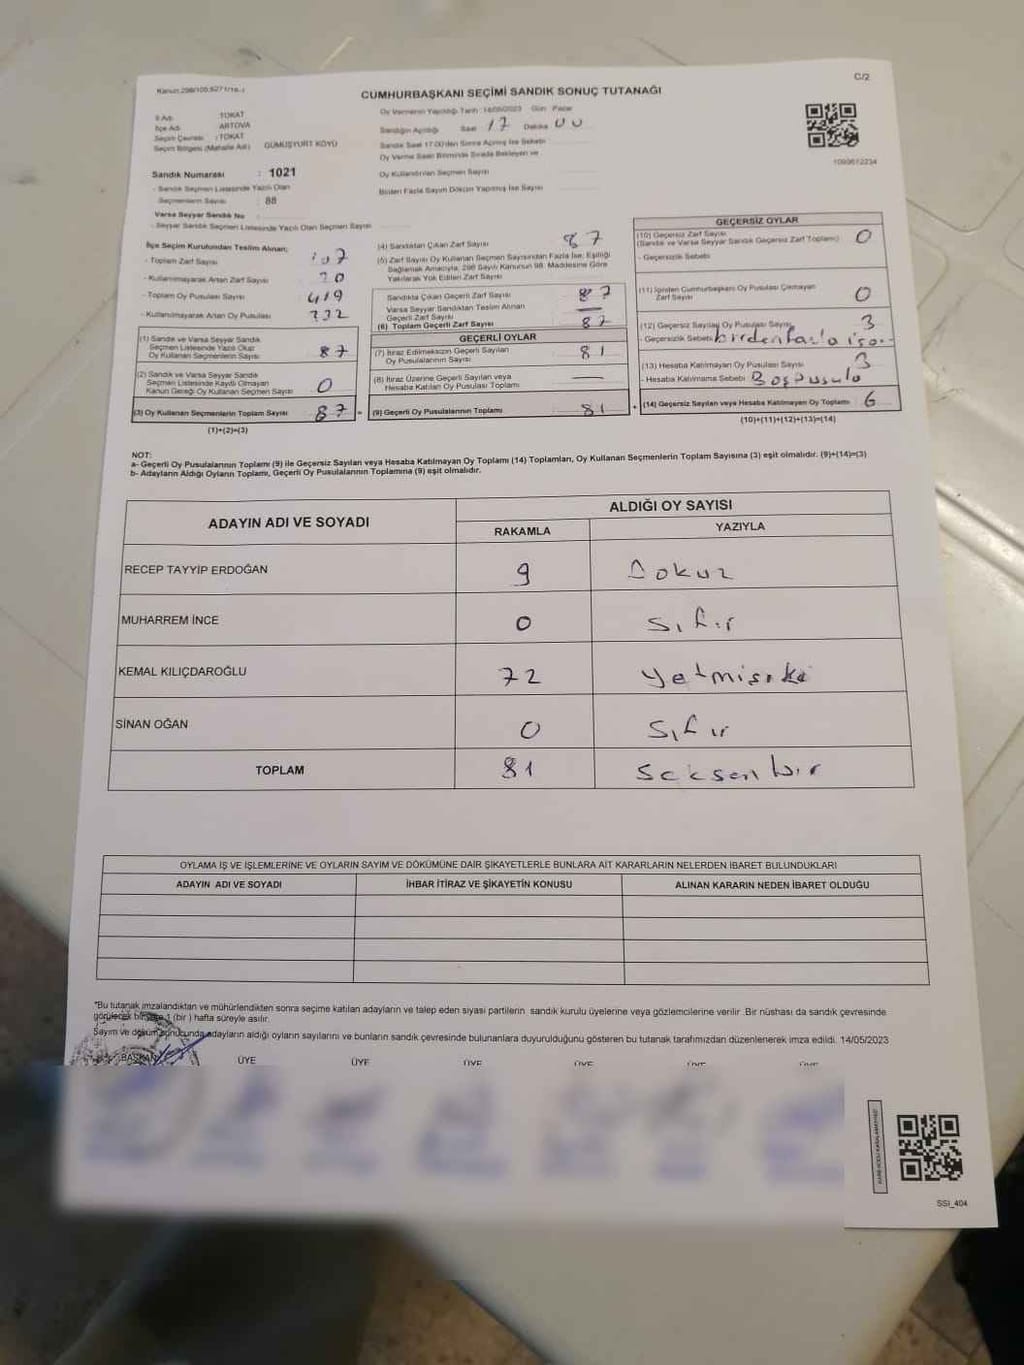 Kanun 298/105,6271/16..
C/2
CUMHURBAŞKANI SEÇİMİ SANDIK SONUÇ TUTANAĞI
İl Adı TOKAT
İlçe Adı ARTOVA
Seçim Çevresi : TOKAT
Seçim Bölgesi (Mahalle Adı) GÜMÜŞYURT KÖYÜ
Sandık Numarası : 1021
- Sandık Seçmen Listesinde Yazılı Olan
Seçmenlerin Sayısı : 88
Varsa Seyyar Sandık No
- Seyyar Sandık Seçmen Listesinde Yazılı Olan Seçmen Sayısı
Oy Vermenin Yapıldığı Tarih : 14/05/2023 Gün : Pazar
Sandığın Açıldığı Saat 17 Dakika 00
Sandık Saat 17.00'den Sonra Açılmış İse Sebebi
Oy Verme Saati Bitiminde Sırada Bekleyen ve
Oy Kullandırılan Seçmen Sayısı
Birden Fazla Sayım Döküm Yapılmış İse Sayısı
1099612234
İlçe Seçim Kurulundan Teslim Alınan;
- Toplam Zarf Sayısı
- Kullanılmayarak Artan Zarf Sayısı 20
- Toplam Oy Pusulası Sayısı 419
- Kullanılmayarak Artan Oy Pusulası 332
(1) Sandık ve Varsa Seyyar Sandık
Seçmen Listesinde Yazılı Olup
Oy Kullanan Seçmenlerin Sayısı 87
(2) Sandık ve Varsa Seyyar Sandık
Seçmen Listesinde Kayıtlı Olmayan
Kanun Gereği Oy Kullanan Seçmen Sayısı 0
(3) Oy Kullanan Seçmenlerin Toplam Sayısı 87
(1)+(2)=(3)
(4) Sandıktan Çıkan Zarf Sayısı 87
(5) Zarf Sayısı Oy Kullanan Seçmen Sayısından Fazla İse; Eşitliği
Sağlamak Amacıyla, 298 Sayılı Kanunun 98. Maddesine Göre
Yakılarak Yok Edilen Zarf Sayısı
Sandıkta Çıkan Geçerli Zarf Sayısı 87
Varsa Seyyar Sandıktan Teslim Alınan
Geçerli Zarf Sayısı —
(6) Toplam Geçerli Zarf Sayısı 87
GEÇERLİ OYLAR
(7) İtiraz Edilmeksizin Geçerli Sayılan
Oy Pusulalarının Sayısı 81
(8) İtiraz Üzerine Geçerli Sayılan veya
Hesaba Katılan Oy Pusulası Toplamı —
= (9) Geçerli Oy Pusulalarının Toplamı 81
GEÇERSİZ OYLAR
(10) Geçersiz Zarf Sayısı
(Sandık ve Varsa Seyyar Sandık Geçersiz Zarf Toplamı) 0
- Geçersizlik Sebebi
(11) İçinden Cumhurbaşkanı Oy Pusulası Çıkmayan
Zarf Sayısı 0
(12) Geçersiz Sayılan Oy Pusulası Sayısı 3
- Geçersizlik Sebebi
(13) Hesaba Katılmayan Oy Pusulası Sayısı 3
- Hesaba Katılmama Sebebi Boş pusula
+ (14) Geçersiz Sayılan veya Hesaba Katılmayan Oy Toplamı 6
(10)+(11)+(12)+(13)=(14)
NOT:
a- Geçerli Oy Pusulalarının Toplamı (9) ile Geçersiz Sayılan veya Hesaba Katılmayan Oy Toplamı (14) Toplamları, Oy Kullanan Seçmenlerin Toplam Sayısına (3) eşit olmalıdır. (9)+(14)=(3)
b- Adayların Aldığı Oyların Toplamı, Geçerli Oy Pusulalarının Toplamına (9) eşit olmalıdır.
ADAYIN ADI VE SOYADI
ALDIĞI OY SAYISI
RAKAMLA YAZIYLA
RECEP TAYYİP ERDOĞAN 9 Dokuz
MUHARREM İNCE 0 Sıfır
KEMAL KILIÇDAROĞLU 72 Yetmişiki
SİNAN OĞAN 0 Sıfır
TOPLAM 81 Seksen bir
OYLAMA İŞ VE İŞLEMLERİNE VE OYLARIN SAYIM VE DÖKÜMÜNE DAİR ŞİKAYETLERLE BUNLARA AİT KARARLARIN NELERDEN İBARET BULUNDUKLARI
ADAYIN ADI VE SOYADI İHBAR İTİRAZ VE ŞİKAYETİN KONUSU ALINAN KARARIN NEDEN İBARET OLDUĞU
*Bu tutanak imzalandıktan ve mühürlendikten sonra seçime katılan adayların ve talep eden siyasi partilerin sandık kurulu üyelerine veya gözlemcilerine verilir. Bir nüshası da sandık çevresinde
görülecek bir yere 1 (bir ) hafta süreyle asılır.
Sayım ve döküm sonucunda adayların aldığı oyların sayılarını ve bunların sandık çevresinde bulunanlara duyurulduğunu gösteren bu tutanak tarafımızdan düzenlenerek imza edildi. 14/05/2023
BAŞKAN ÜYE ÜYE ÜYE ÜYE ÜYE ÜYE
SSI_404